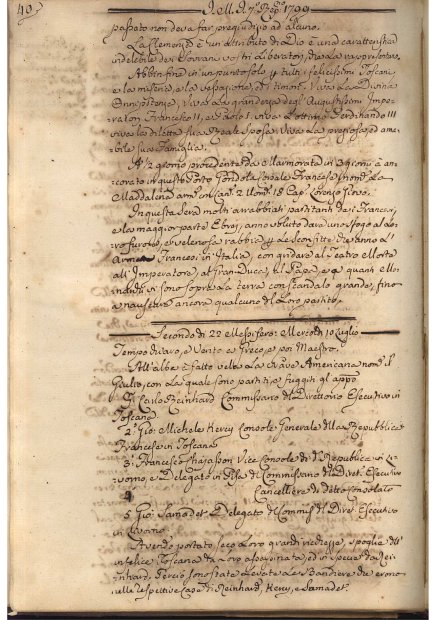 40
passato non deva a far pregiudizio ad alcuno.
La Clemenza è un attributo di Dio è una caratteristica
indelebile dei Sovrani nostri Liberatori, che La rappresentano.
Abbin fine in un punto solo tutti i felicissimi Toscani,
e la miseria, e la vessazione, ed i timori. Viva La Divina
Onnipotenza, viva La grandezza degl' Augustissimi Impe-
ratori Francesco II, e Paolo I. viva L'ottimo Ferdinando III
viva la diletta sua Reale Sposa Viva La preziosa ed ama-
bile sua Famiglia.
corato in questo Porto Gondola Corsale Francese nom.
Maddalena arm. in Cap. Lorenzo
In questa sera molti arrabbiati partitanti dei Francesi,
e la maggior parte Ebrei, anno voluto dar uno sfogo al Lo-
ro furore, e velenosa rabbia Le sconfitte
Francesi in Italia, con gridare al Teatro Morte
all' Imperatore, al Gran-Duca, al Papa, e a quanti
si sono sopra La terra con scandalo grande, fino
a nauseare ancora qualcuno del Loro partito.
Secondo di 22 Messifero: Mercoledì 10 Luglio
Tempo vario, e Vento a Greco, e poi Maestro.
All' alba è fatto vela La Nave Americana nom.
Giulio, con La quale sono partiti, e fuggiti gli appo
Carlo Reinhard Commissario del Direttorio Esecutivo in
Toscana
2. Gio: Michele Console Generale della Repubblica
Francese in Toscana
3. Francesco Vice Console di d. Repubblica in Li-
vorno, e Delegato in Pisa del Commissario del Diret. Esecutivo
4. Cancelliere di detto Consolato
5. Gio: Delegato del Commiss. del Diret. Esecutivo
in Livorno
Avendo portato seco Loro grandi ricchezze, spoglie dell'
infelice Toscana da Loro assassinata, ed in specie da Rei-
nhard. Perciò sono state Levate Le Bandiere che erono
nelle respettive Case di Reinhard,